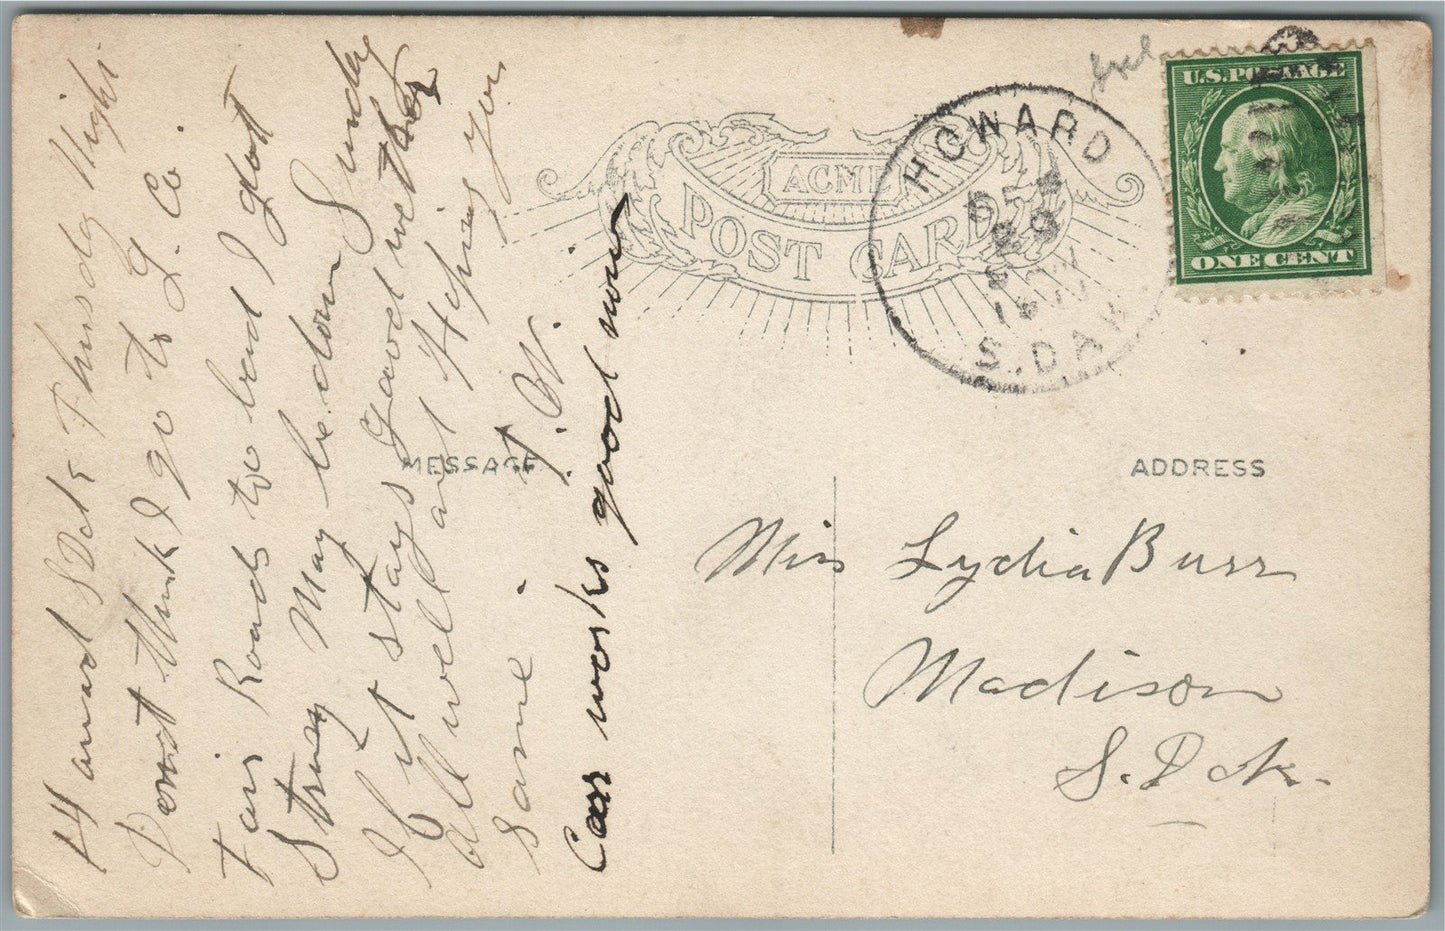 Howard S Dak Thursdy Night
Dont think I go to L. Co
Fair Roads to bad I guess
May be down Sunday
If it stays good wether
All well and Hoping you
same.
T. W.
Car works good now
ACME
POST CARD
MESSAGE
ADDRESS
HOWARD
29
S. DAK
U.S. POSTAGE
ONE CENT
Miss Lydia Burr
Madison
S. Dak.